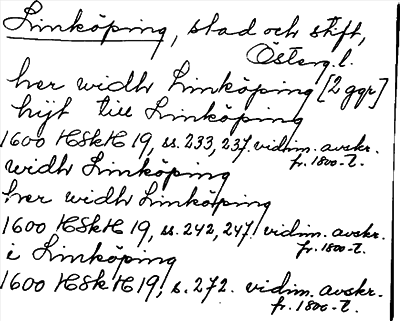 Linköping, stad och stift,
Österg.l.
her widh Linköping [2 ggr]
hijt till Linköping
1600 HSkH 19, ss. 233, 237. vidim. avskr.
fr. 1800-t.
widh Linköping
her widh Linköping
1600 HSkH 19, ss. 242, 247. vidim. avskr.
fr. 1800-t.
i Linköping
1600 HSkH 19, s. 272. vidim. avskr.
fr. 1800-t.